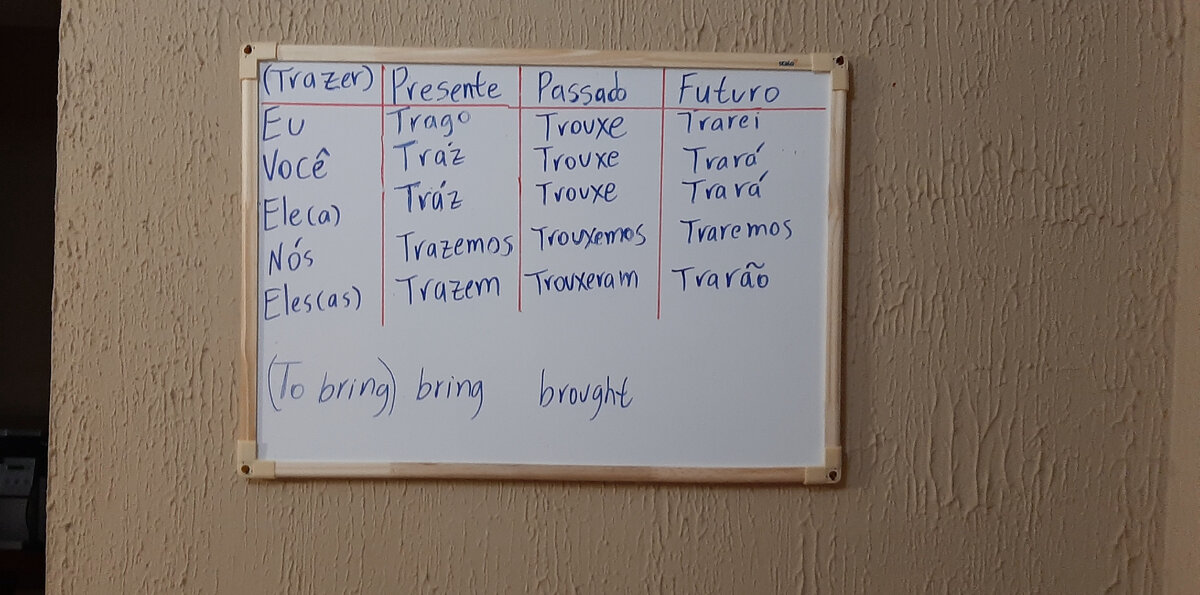 (Trazer) Presente Passado Futuro
Eu Trago Trouxe Trarei
Você Tráz Trouxe Trará
Ele(a) Tráz Trouxe Trará
Nós Trazemos Trouxemos Traremos
Eles(as) Trazem Trouxeram Trarão
(To bring) bring brought